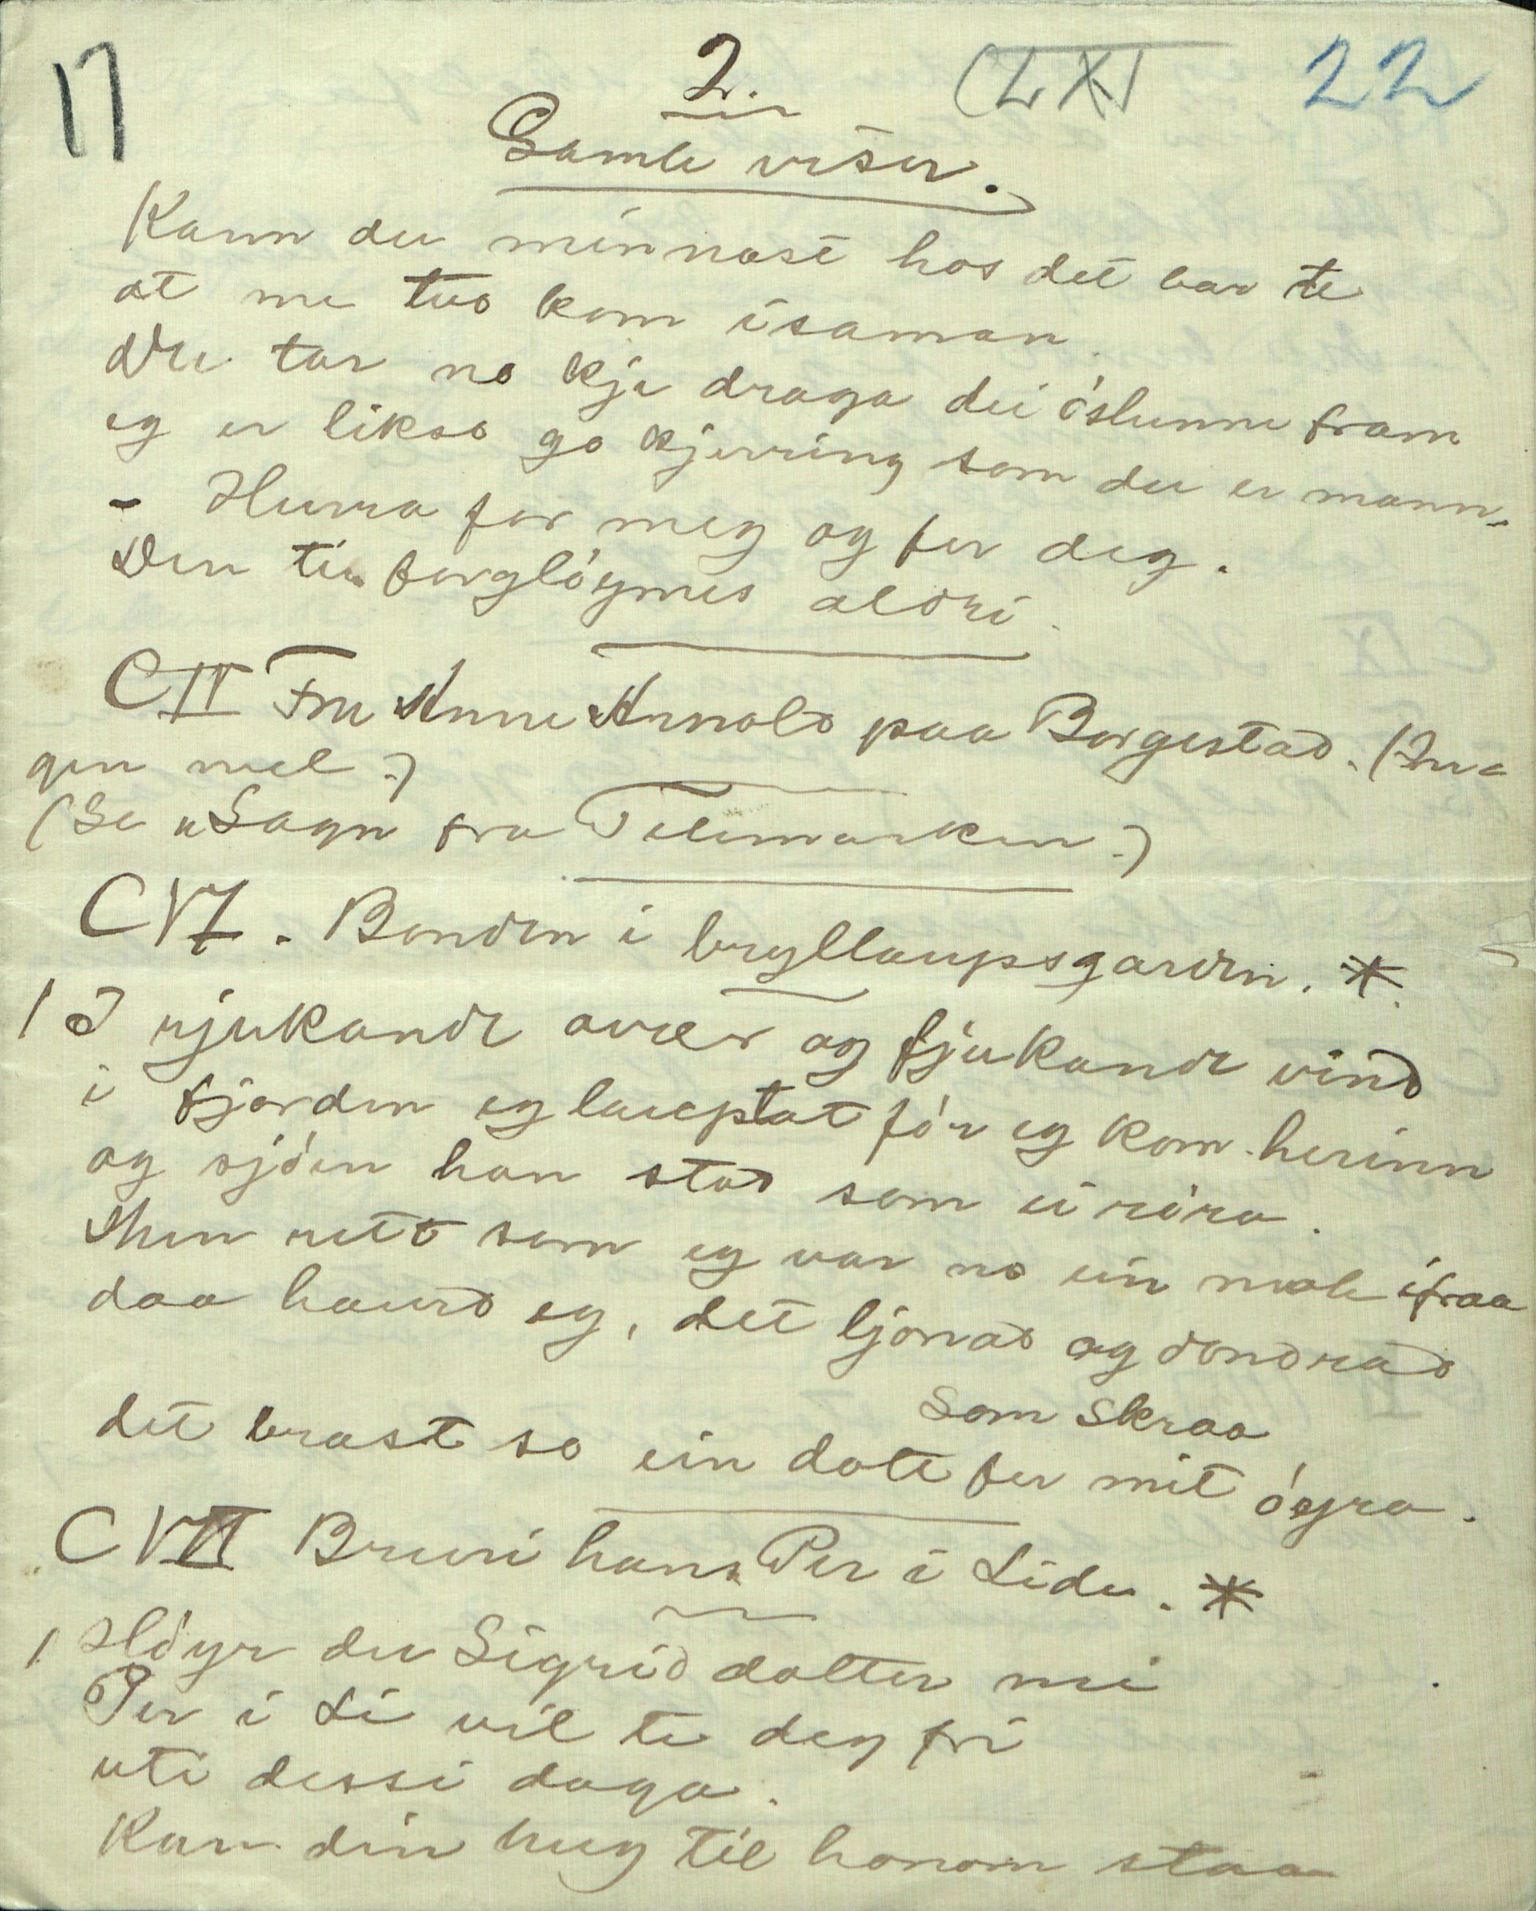 17 2. CLXI 22
Gamle viser.
Kann du minnast hos det bar te
at me tvo kom isaman.
Du tar no kje draga dei óslunne fram
eg er likso go kjerring som du er mann.
- Hurra for meg og fer deg.
Den tie forglóymes aldri.
CII Fru Anne Arnold paa Borgestad. (In=
gen mel.)
(Se "Sagn fra Telemarken.)
CVI. Bonden i bryllaupsgarden. *
1 I rjukande avær og fjukande vind
i fjorden eg laup tat fór eg kom herinn
og sjóen han stod som ei róra.
Men rett som eg var no ein mole ifraa
daa hourd eg, det ljonad og dondrad
som skraa
det brast so ein dott fer mit óyra.
CVII Bruri hans Per i Lide. *
1. Hóyr du Sigrid dotter mi
Per i Li vil te deg fri
uti dessi daga.
Kan din hug til honom staa